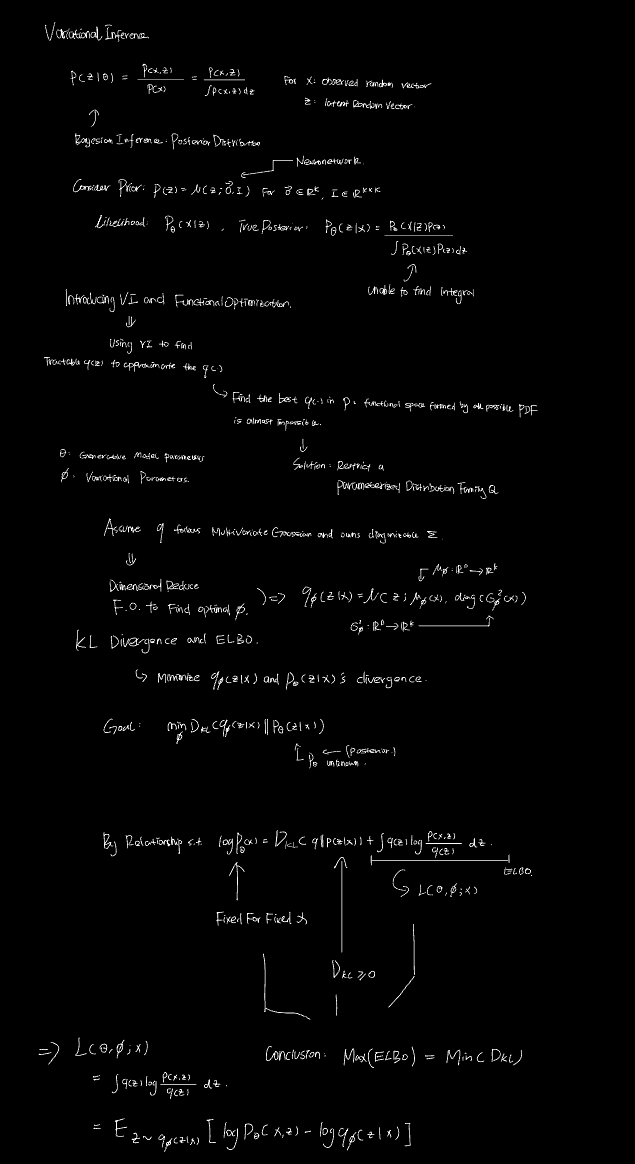 Variational Inference
P(z|θ) = P(x,z) / P(x) = P(x,z) / ∫P(x,z)dz   For X: observed random vector
z: latent Random Vector.
↑
Bayesian Inference: Posterior Distribution
Neuronetwork.
Consider Prior: P(z) = N(z; 0⃗, I) For 0⃗ ∈ ℝᵏ, I ∈ ℝᵏˣᵏ
Likelihood: P_θ(x|z), True Posterior: P_θ(z|x) = P_θ(x|z)P(z) / ∫P_θ(x|z)P(z)dz
↑
unable to find Integral
Introducing VI and Functional Optimization.
⇓
Using VI to find
Tractable q(z) to approximate the q(·)
↳ Find the best q(·) in P: functional space formed by all possible PDF
is almost impossible.
↓
θ: Generative Model parameters
Solution: Restrict a
ϕ: Variational Parameters.
Parameterized Distribution Family Q
Assume q follows Multivariate Gaussian and owns Σ.
⇓
μ_ϕ: ℝᴰ → ℝᵏ
Dimensional Reduce
F.O. to find optimal ϕ. ) => q_ϕ(z|x) = N(z; μ_ϕ(x), diag(σ²_ϕ(x))
σ²_ϕ: ℝᴰ → ℝᵏ
KL Divergence and ELBO.
↳ Minimize q_ϕ(z|x) and P_θ(z|x)'s divergence.
Goal: min_ϕ D_KL(q_ϕ(z|x) ‖ P_θ(z|x))
P_θ ← (posterior)
unknown.
By Relationship s.t. log P_θ(x) = D_KL(q‖P(z|x)) + ∫q(z) log P(x,z)/q(z) dz.
ELBO.
L(θ,ϕ;x)
Fixed For Fixed x
D_KL ≥ 0
=> L(θ,ϕ;x)   Conclusion: Max(ELBO) = Min(D_KL)
= ∫q(z) log P(x,z)/q(z) dz.
= E_{z∼q_ϕ(z|x)} [log P_θ(x,z) − log q_ϕ(z|x)]